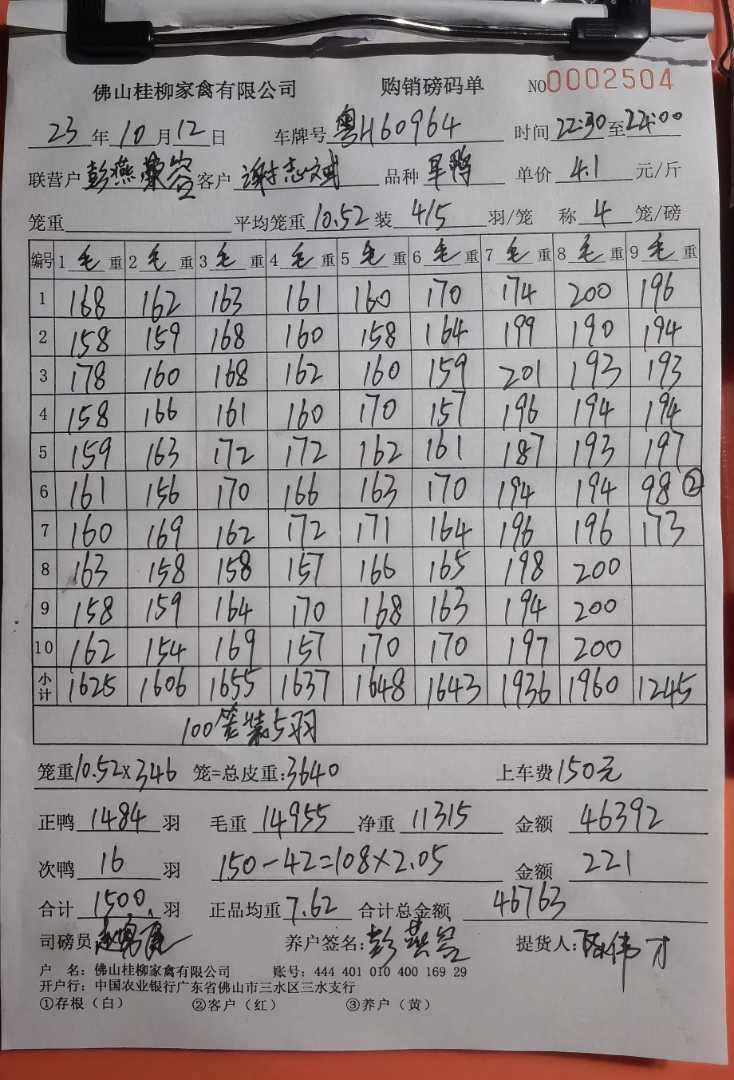 佛山桂柳家禽有限公司 购销磅码单 NO0002504
23年10月12日 车牌号粤H60964 时间22:30至24:00
联营户彭燕 客户谢志斌 品种旱鸭 单价4.1元/斤
笼重 平均笼重10.52装4/5羽/笼 称4笼/磅
编号 1毛重 2毛重 3毛重 4毛重 5毛重 6毛重 7毛重 8毛重 9毛重
1 168 162 163 161 160 170 174 200 196
2 158 159 168 160 158 164 199 190 194
3 178 160 168 162 160 159 201 193 193
4 158 166 161 160 170 157 196 194 194
5 159 163 172 172 162 161 187 193 197
6 161 156 170 166 163 170 194 194 98②
7 160 169 162 172 171 164 196 196 173
8 163 158 158 157 166 165 198 200
9 158 159 164 170 168 163 194 200
10 162 154 169 157 170 170 197 200
小计 1625 1606 1655 1637 1648 1643 1936 1960 1245
100笼装5羽
笼重10.52×346笼=总皮重:3640 上车费150元
正鸭1484羽 毛重14955净重11315 金额46392
次鸭16羽 150-42=108×2.05 金额221
合计1500羽 正品均重7.62 合计总金额46763
司磅员 养户签名:彭燕 提货人:陈伟才
户 名:佛山桂柳家禽有限公司 账号:444 401 010 400 169 29
开户行:中国农业银行广东省佛山市三水区三水支行
①存根(白) ②客户(红) ③养户(黄)